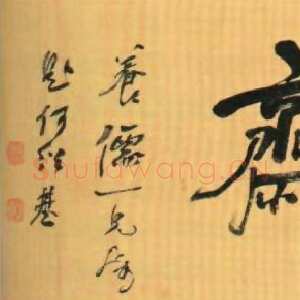 齋
養儒一兄屬
何紹基
shufawang.cn